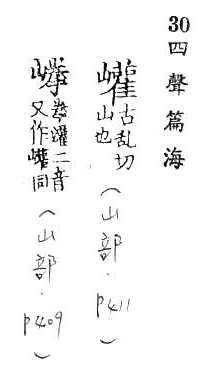 30 四聲篇海
巏 古乱切 山也 (山部．p411)
灌二音 又作巏同 (山部．p409)